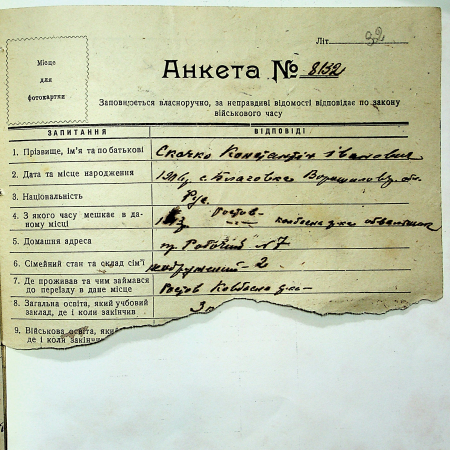 Літ. 32
Місце
для
фотокартки
Анкета № 8132
Заповнюється власноручно, за неправдиві відомості відповідає по закону
військового часу
ЗАПИТАННЯ ВІДПОВІДІ
1. Прізвище, ім'я та по батькові Скачко Константін Іванович
2. Дата та місце народження с. Благовка Ворошиловг. об.
3. Національність Рус.
4. З якого часу мешкає в да-
ному місці
5. Домашня адреса Робочий №7
6. Сімейний стан та склад сім'ї 2
7. Де проживав та чим займався
до переїзду в дане місце Ростов
8. Загальна освіта, який учбовий
заклад, де і коли закінчив
9. Військова освіта,
де і коли